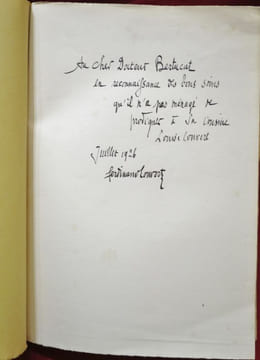 Au cher Docteur Bertucat
en reconnaissance des bons soins
qu'il n'a pas ménagé de
prodiguer à sa cousine
Louise Couvert
Juillet 1926
Ferdinand Couvert